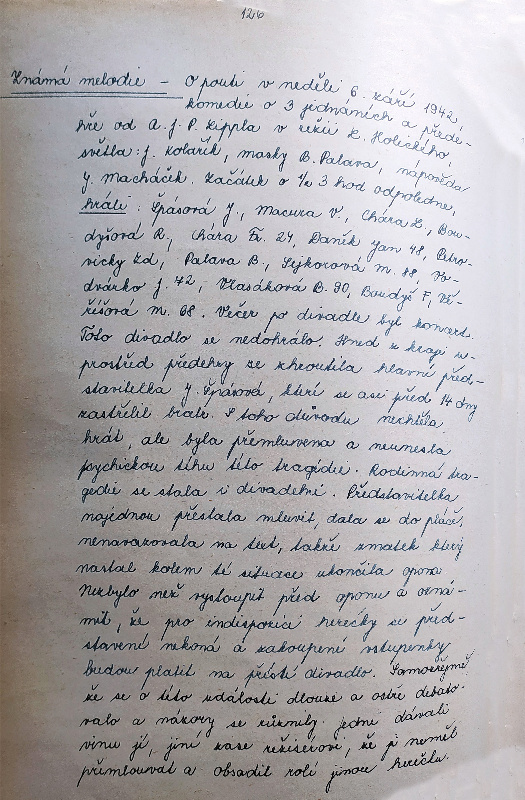 126
Známá melodie - O pouti v neděli 6. září 1942,
komedie o 3 jednáních a přede-
hře od A. J. P. Kippla v režii L. Holického,
světla: J. Kolařík, masky B. Palava, nápověda
J. Macháček. Začátek o 1/2 3 hod odpoledne,
hráli: Špásová J., Macura V., Chára L., Bou-
dyšová R., Chára Fr. 24, Daněk Jan 48, Petro-
vický Zd, Palava B., Sýkorová M. 88, Vo-
dvárko J. 42, Vrasáková B. 90, Boudyš F., Vě-
řišová M. 68. Večer po divadle byl koncert.
Toto divadlo se nedohrálo. Hned z kraje u-
prostřed předehry se zhroutila hlavní před-
stavitelka J. Špásová, které se asi před 14 dny
zastřelil bratr. S toho důvodu nechtěla
hrát, ale byla přemluvena a neunesla
psychickou tíhu této tragédie. Rodinná tra-
gedie se stala i divadelní. Představitelka
najednou přestala mluvit, dala se do pláče,
nenavazovala na text, takže zmatek který
nastal kolem té situace ukončila opona.
Nezbylo než vystoupit před oponu a ozná-
mit, že pro indispozici herečky se před-
stavení nekoná a zakoupené vstupenky
budou platit na příští divadlo. Samozřejmě
že se o této události dlouze a ostře debato-
valo a názory se různily. Jedni dávali
vinu jí, jiní zase režiserovi, že ji neměl
přemlouvat a obsadit roli jinou herečku.